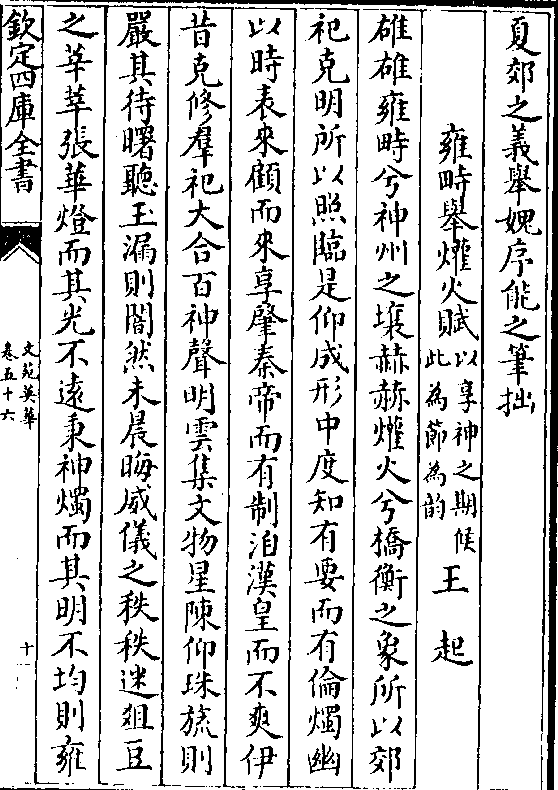 夏郊之義舉媿序能之筆拙
雍畤舉爟火賦以享神之期候此為節為韵 王起
雄雄雍畤兮神州之壤赫赫爟火兮橋衡之象所以郊
祀克明所以照臨是仰成形中度知有要而有倫燭幽
以時表來顧而來享肈秦帝而有制洎漢皇而不爽伊
昔克修羣祀大合百神聲明雲集文物星陳仰珠旒則
嚴其待曙聽玉漏則闇然未晨晦威儀之秩秩迷爼豆
之莘莘張華燈而其光不遠秉神燭而其明不均則雍
欽定四庫全書
文苑英華
卷五十六
十